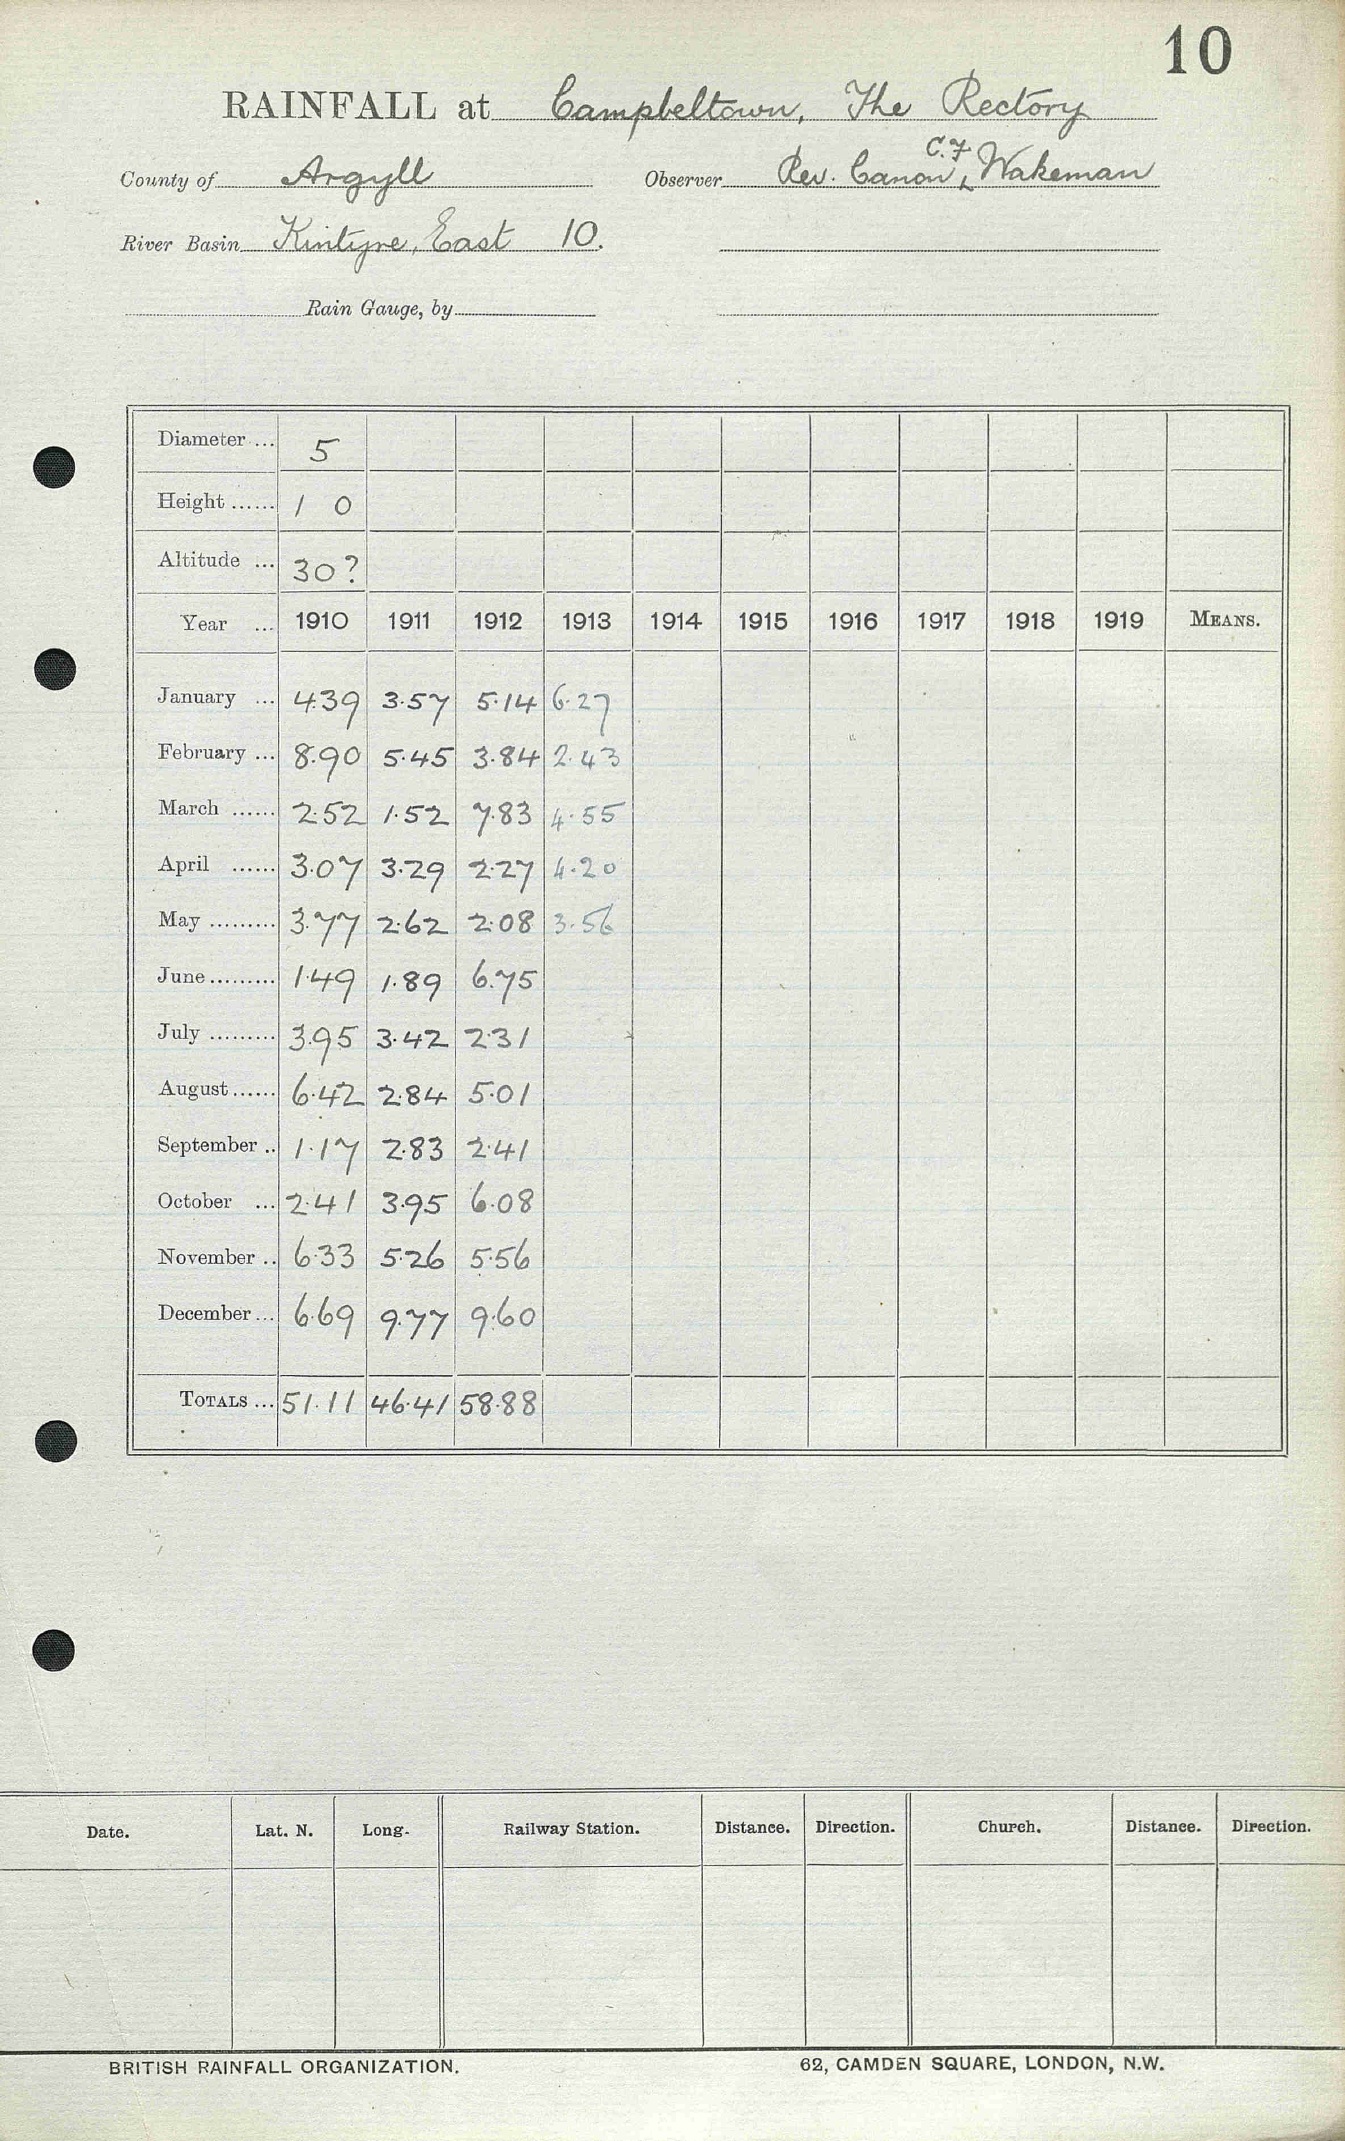 10
RAINFALL at Campbeltown, The Rectory
County of Argyll Observer Rev. Canon C.F. Wakeman
River Basin Kintyre, East 10.
Rain Gauge, by
Diameter ... 5
Height ...... 1 0
Altitude ... 30?
Year ... 1910 1911 1912 1913 1914 1915 1916 1917 1918 1919 MEANS.
January ... 4.39 3.57 5.14 6.27
February ... 8.90 5.45 3.84 2.43
March ...... 2.52 1.52 7.83 4.55
April ...... 3.07 3.29 2.27 4.20
May ......... 3.77 2.62 2.08 3.56
June ......... 1.49 1.89 6.75
July ......... 3.95 3.42 2.31
August ...... 6.42 2.84 5.01
September .. 1.17 2.83 2.41
October ... 2.41 3.95 6.08
November .. 6.33 5.26 5.56
December ... 6.69 9.77 9.60
TOTALS ... 51.11 46.41 58.88
Date. Lat. N. Long. Railway Station. Distance. Direction. Church. Distance. Direction.
BRITISH RAINFALL ORGANIZATION. 62, CAMDEN SQUARE, LONDON, N.W.